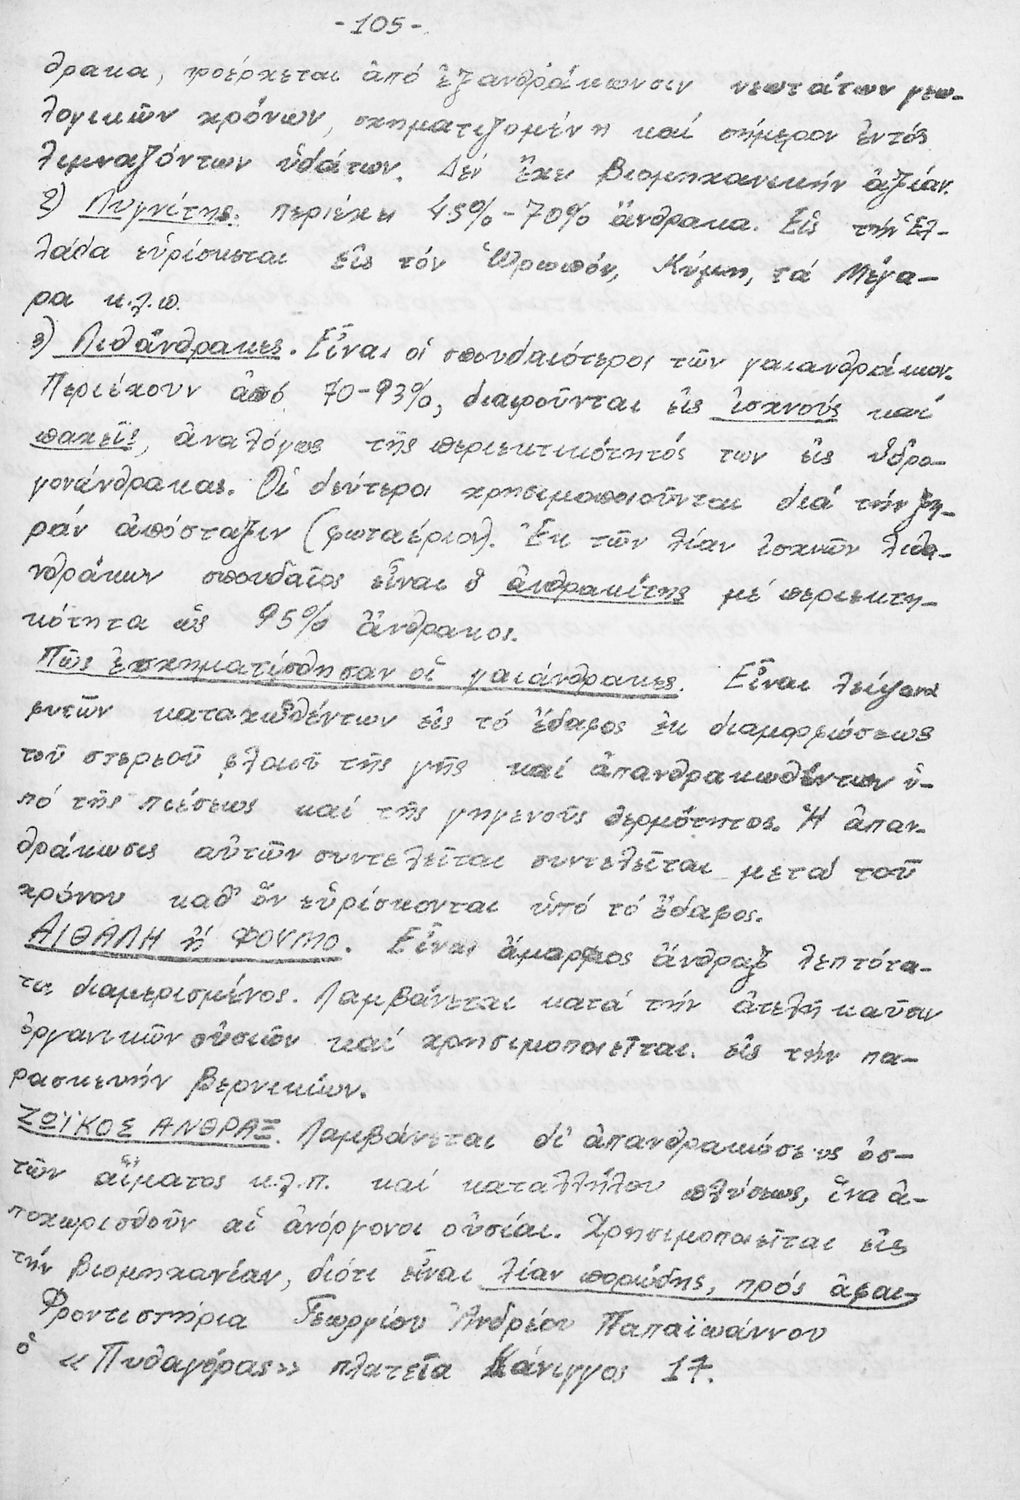 -105-
θρακα, προέρχεται ἀπό ἐξανθράκωσιν νεωτάτων γεω-
λογικῶν χρόνων, σχηματιζομένη καί σήμερον ἐντός
λιμναζόντων ὑδάτων. Δέν ἔχει βιομηχανικήν ἀξίαν.
2) Λιγνίτης. περιέχει 45%-70% ἄνθρακα. Εἰς τήν Ἑλ-
λάδα εὑρίσκεται εἰς τόν Ὠρωπόν, Κύμη, τά Μέγα-
ρα κ.λ.π.
3) Λιθάνθρακες. Εἶναι οἱ σπουδαιότεροι τῶν γαιανθράκων.
Περιέχουν ἀπό 70-93%, διαιροῦνται εἰς ἰσχνούς καί
παχεῖς, ἀναλόγως τῆς περιεκτικότητός των εἰς ὑδρο-
γονάνθρακας. Οἱ δεύτεροι χρησιμοποιοῦνται διά τήν ξη-
ράν ἀπόσταξιν (φωταέριον). Ἐκ τῶν λίαν ἰσχνῶν λιθα-
νθράκων σπουδαῖος εἶναι ὁ ἀνθρακίτης μέ περιεκτη-
κότητα ὡς 95% ἄνθρακος.
Πῶς ἐσχηματίσθησαν οἱ γαιάνθρακες. Εἶναι λείψανα
φυτῶν καταχωθέντων εἰς τό ἔδαφος ἐκ διαμορφώσεως
τοῦ στερεοῦ φλοιοῦ τῆς γῆς καί ἀπανθρακωθέντων ὑ-
πό τῆς πιέσεως καί τῆς γηγενοῦς θερμότητος. Ἡ ἀπαν-
θράκωσις αὐτῶν συντελεῖται συντελεῖται μετά τοῦ
χρόνου καθ' ὅν εὑρίσκονται ὑπό τό ἔδαφος.
ΑΙΘΑΛΗ ἤ ΦΟΥΜΟ. Εἶναι ἄμορφος ἄνθραξ λεπτότα-
τα διαμερισμένος. Λαμβάνεται κατά τήν ἀτελῆ καῦσιν
ὀργανικῶν οὐσιῶν καί χρησιμοποιεῖται. εἰς τήν πα-
ρασκευήν βερνικίων.
ΖΩΪΚΟΣ ΑΝΘΡΑΞ. Λαμβάνεται δι' ἀπανθρακώσεως ὀσ-
τῶν αἵματος κ.λ.π. καί καταλλήλου πλύσεως, ἵνα ἀ-
ποχωρισθοῦν αἱ ἀνόργονοι οὐσίαι. Χρησιμοποιεῖται εἰς
τήν βιομηχανίαν, διότι εἶναι λίαν πορώδης, πρός ἀφαι-
Φροντιστήρια Γεωργίου Ἀνδρέου Παπαϊωάννου
ὁ «Πυθαγόρας» πλατεῖα Κάνιγγος 17.